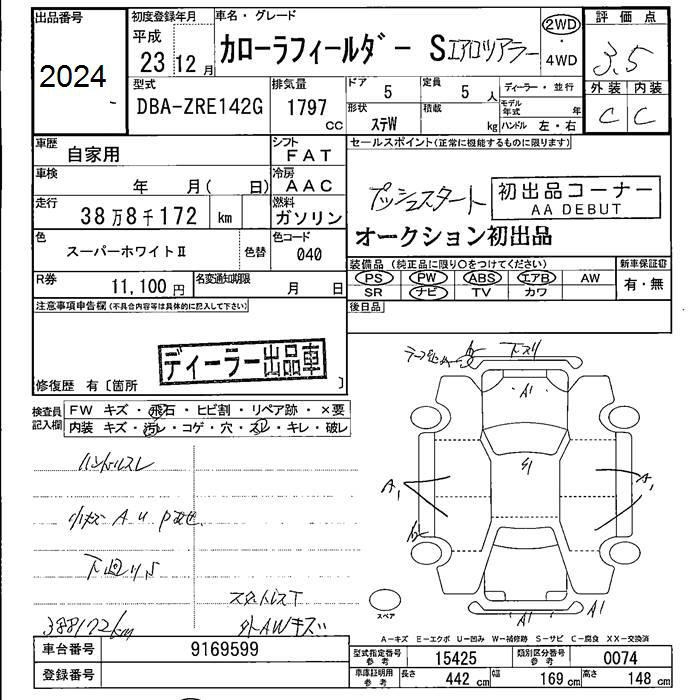 出品番号
2024
初度登録年月
平成
23 12 月
車名・グレード
カローラフィールダー Sエアロツアラー
2WD
・
4WD
評価点
3.5
外装 内装
C C
型式
DBA-ZRE142G
排気量
1797
cc
ドア
5
定員
5 人
ディーラー・並行
形状
ステW
積載
kg
モデル年式 年
ハンドル 左・右
車歴
自家用
シフト
FAT
車検
年 月( 日)
冷房
AAC
走行
38万8千172 km
燃料
ガソリン
色
スーパーホワイトⅡ
色替
色コード
040
R券
11,100 円
名変通知期限
月 日
セールスポイント(正常に機能するものに限ります)
プッシュスタート
初出品コーナー
AA DEBUT
オークション初出品
装備品(純正品に限り○をつけてください)
新車保証書
PS PW ABS エアB AW
SR ナビ TV カワ
有・無
後日品
注意事項申告欄(不具合内容等は具体的に記入して下さい)
ディーラー出品車
修復歴 有〔箇所 〕
検査員記入欄
FW キズ・飛石・ヒビ割・リペア跡・×要
内装 キズ・汚レ・コゲ・穴・スレ・キレ・破レ
ハンドルスレ
小キズ A U P
下廻りS
スタットレスT
388172km
外AWキズ
下スリ
A1
A1
A1
A1
A1
スペア
A-キズ E-エクボ U-凹み W-補修跡 S-サビ C-腐食 XX-交換済
車台番号
9169599
登録番号
型式指定番号
参考
15425
類別区分番号
参考
0074
車庫証明用
参考
長さ
442 cm
幅
169 cm
高さ
148 cm